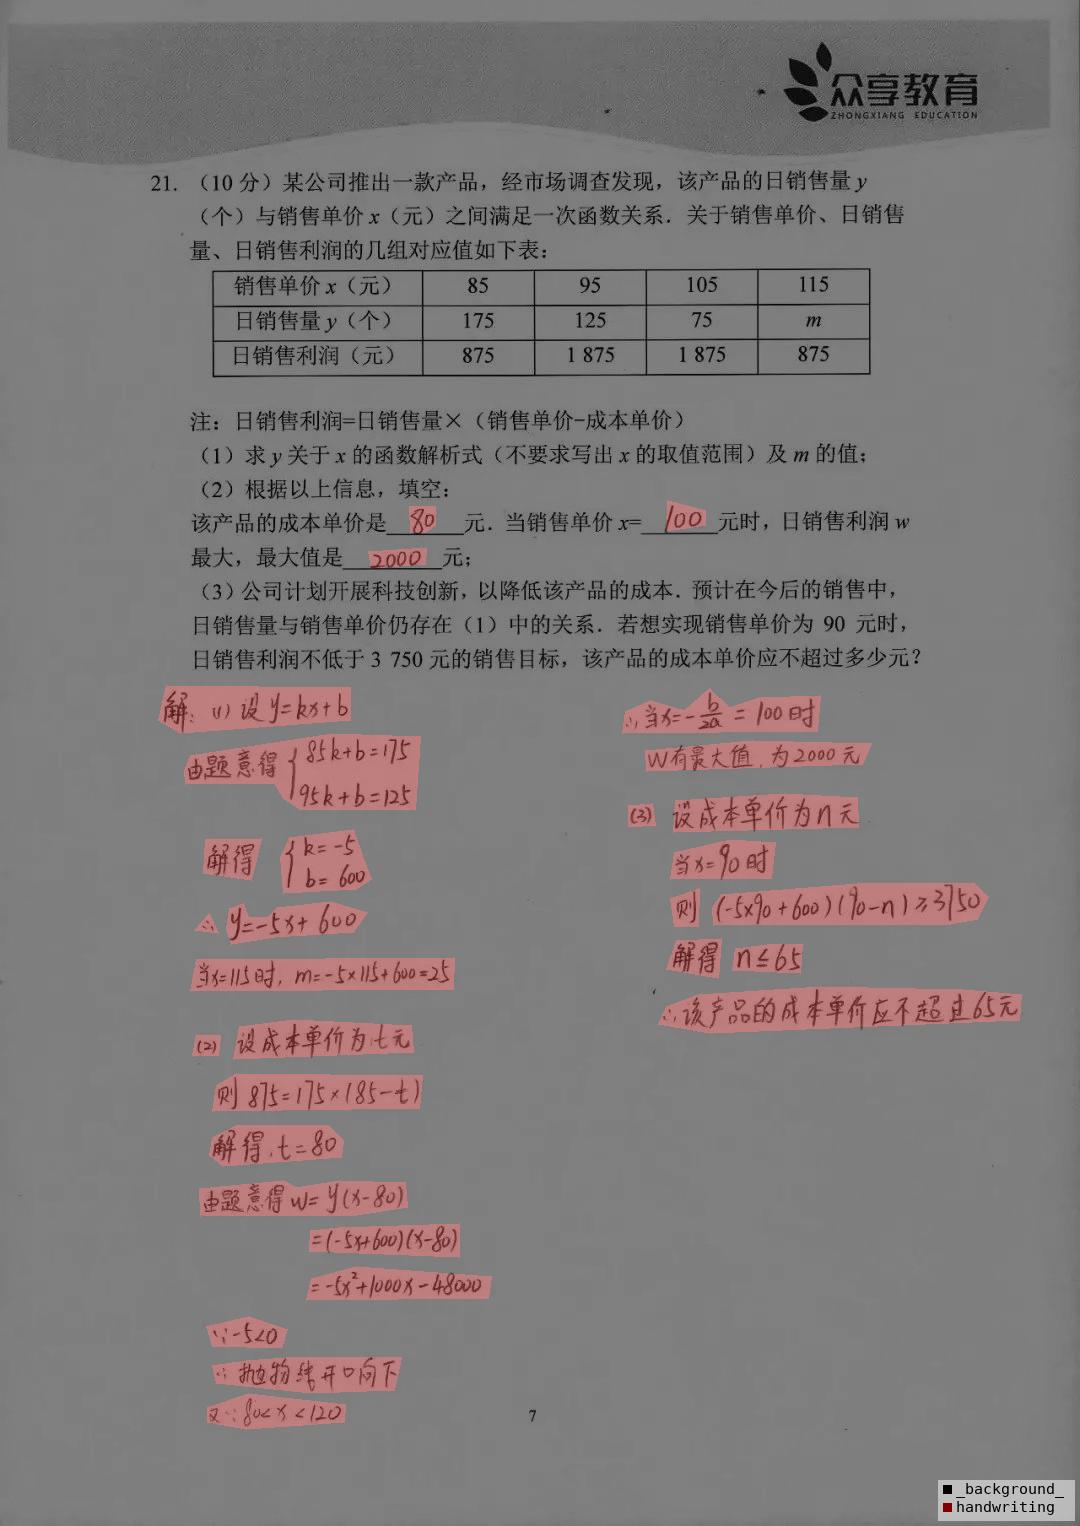 众享教育
ZHONGXIANG EDUCATION
21.（10 分）某公司推出一款产品，经市场调查发现，该产品的日销售量 y
（个）与销售单价 x（元）之间满足一次函数关系．关于销售单价、日销售
量、日销售利润的几组对应值如下表：
销售单价 x（元） 85 95 105 115
日销售量 y（个） 175 125 75 m
日销售利润（元） 875 1 875 1 875 875
注：日销售利润=日销售量×（销售单价-成本单价）
（1）求 y 关于 x 的函数解析式（不要求写出 x 的取值范围）及 m 的值；
（2）根据以上信息，填空：
该产品的成本单价是 80 元．当销售单价 x= 100 元时，日销售利润 w
最大，最大值是 2000 元；
（3）公司计划开展科技创新，以降低该产品的成本．预计在今后的销售中，
日销售量与销售单价仍存在（1）中的关系．若想实现销售单价为 90 元时，
日销售利润不低于 3 750 元的销售目标，该产品的成本单价应不超过多少元？
解：(1) 设 y=kx+b
由题意得 { 85k+b=175
95k+b=125
解得 { k=-5
b=600
∴ y=-5x+600
当x=115时，m=-5×115+600=25
(2) 设成本单价为t元
则 875=175×(85-t)
解得，t=80
由题意得 w=y(x-80)
=(-5x+600)(x-80)
=-5x²+1000x-48000
∵-5<0
∴抛物线开口向下
又∵80<x<120
∴当x=-b/2a=100时
W有最大值，为2000元
(3) 设成本单价为n元
当x=90时
则 (-5×90+600)(90-n)≥3750
解得 n≤65
∴该产品的成本单价应不超过65元
7
_background_
handwriting